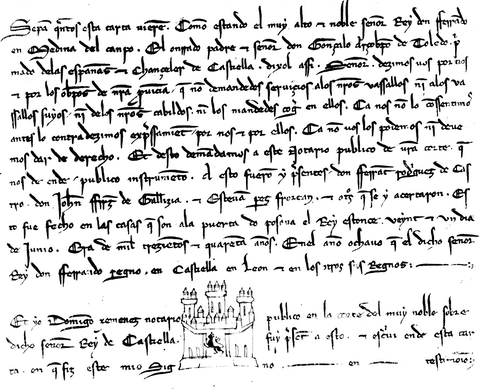 Sepan q̃ntos esta carta vierẽ. Como estando el muy alto ⁊ noble señor Rey don fferrãdo
en Medina del canpo. El onrrado padre ⁊ señor don Gonçalo Arçobp̃o de Toledo. p̃
mado delas españas ⁊ Chançeler de Castiella. dixol assi. Señor. dezimos vos por nos
⁊ por los obp̃os de nr̃a ꝓuiçia. q̃ no demandedes seruiçios alos nr̃os vassallos nĩ alos va
ssallos suyos. nĩ delos nr̃os cabildos. nĩ los mandedes cog̃ en ellos. Ca nos nõ lo cõsentimos
antes lo contradezimos exp̃ssamiẽt por nos ⁊ por ellos. Ca nõ vos lo podemos nĩ deue
mos dar de derecho. Et desto demãdamos a este Notario publico de ur̃a corte. q̃
nos de ende publico instrumẽto. A esto fuerõ p̃sentes. don fferrãt Rodr̃gues de Cas
tro. don Johñ ffr̃rz de Gallizia. ⁊ Esteuan per̃z frorean. ⁊ otr̃s que se y açertaron. Es
to fue fecho en las casas q̃ son ala puerta do posaua el Rey estonce. veynt ⁊ un dia
de Junio. Era de mill trezientos ⁊ quarenta años. Enel año ochauo q̃ el dicho señor
Rey don fferrando regno. en Castiella en Leon ⁊ en los otros s s Regnos:
Et yo Domĩgo xemenez notario publico en la corte del muy noble sobre
dicho señor Rey de Castiella. fuy p̃sẽt a esto. ⁊ escriui ende esta car
ta. en q̃ fiz este mio Sig no en testimonio: